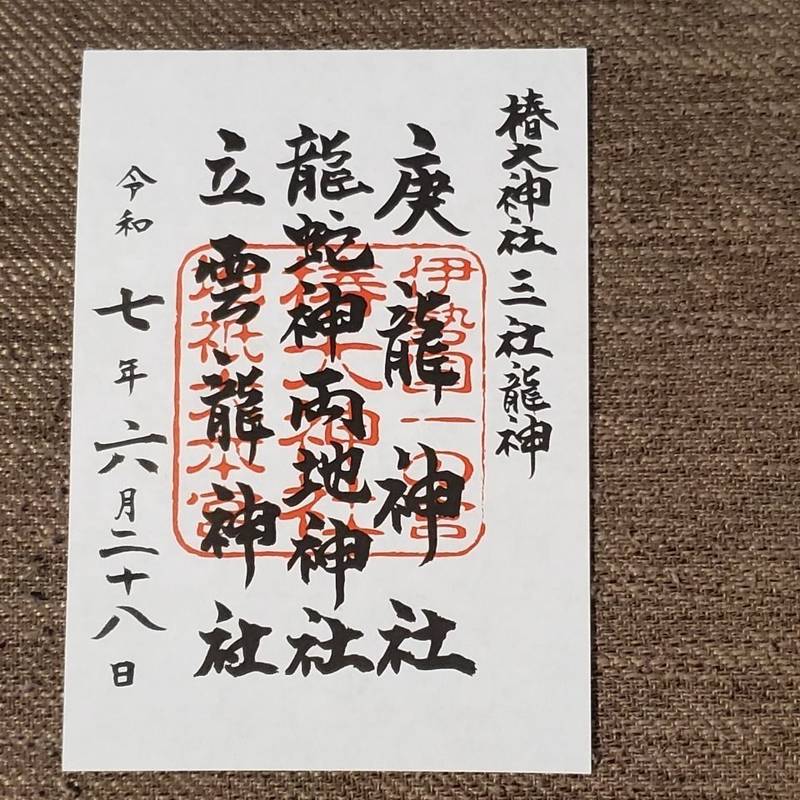 椿大神社三社龍神
庚龍神社
龍蛇神両地神社
立雲龍神社
令和七年六月二十八日
伊勢国一之宮
椿大神社
地祇大本宮